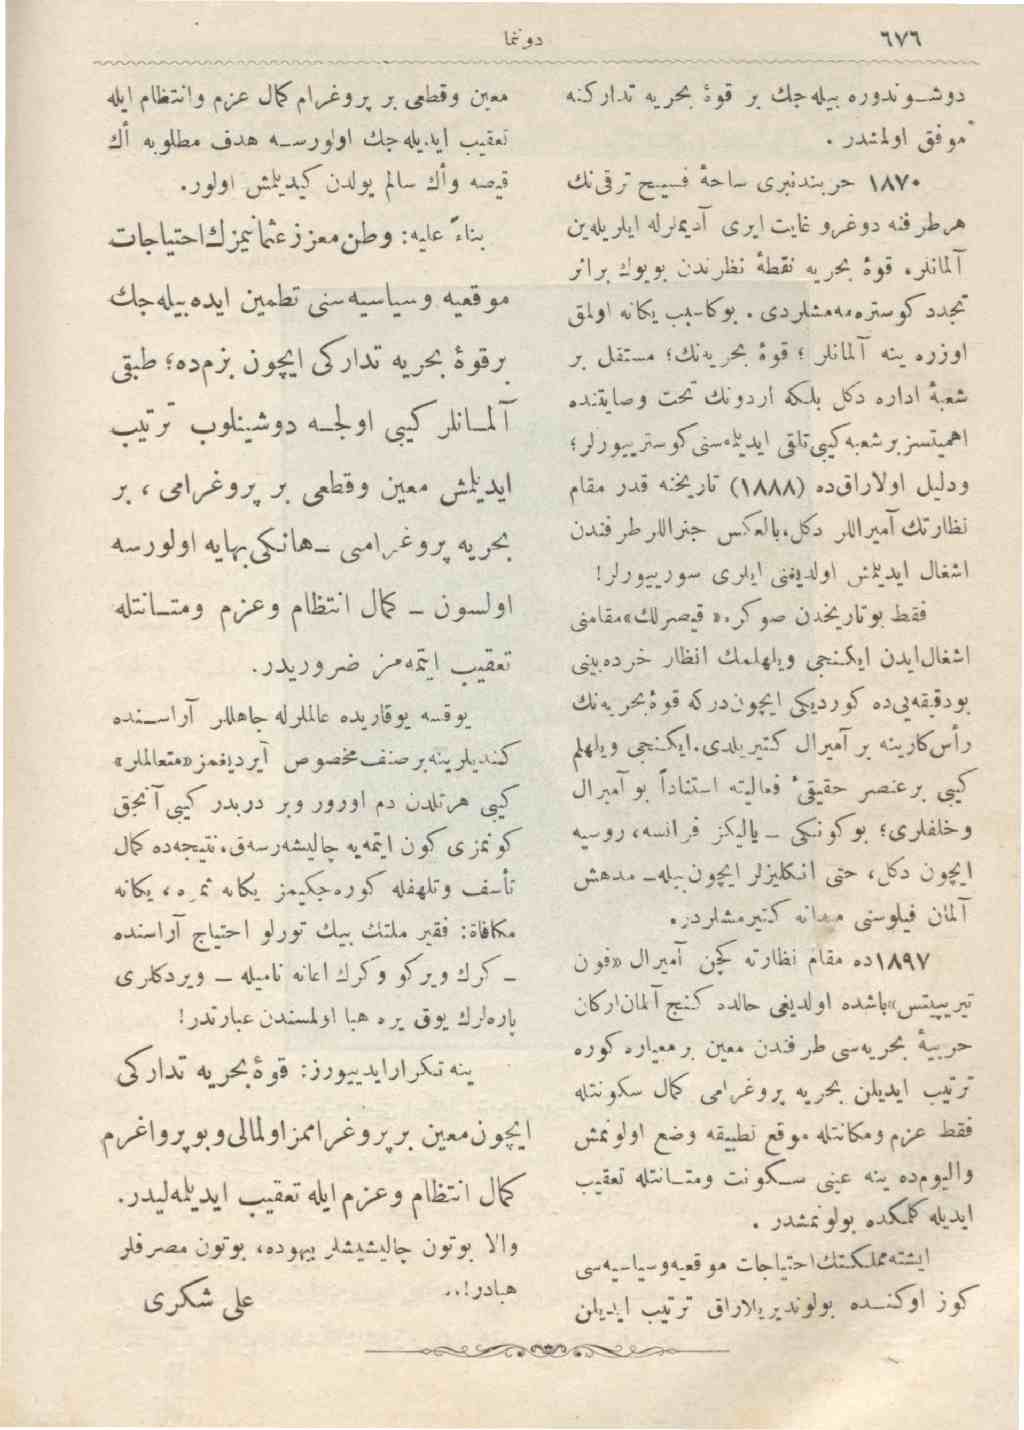 ٦٧٦
دوننما
دوشوندوره بیله‌جك بر قوهٔ بحریه تداركنه
موفق اولمشدر .
١٨٧٠ حربندنبری ساحهٔ فسیح ترقی‌نك
هر طرفنه دوغرو غایت ایری آدیملرله ایلریله‌ین
آلمانلر، قوهٔ بحریه نقطهٔ نظرندن بویوك بر اثر
تجدد كوستره‌مه‌مشلردی . بوكا سبب یكانه اولمق
اوزره ینه آلمانلر ؛ قوهٔ بحریه‌نك؛ مستقل بر
شعبهٔ اداره دكل بلكه اردونك تحت وصایتنده
اهمیتسز بر شعبه كیبی تلقی ایدیلمه‌سنی كوسترییورلر؛
ودلیل اولاراق‌ده (١٨٨٨) تاریخنه قدر مقام
نظارتك آمیراللر دكل، بالعكس جنراللر طرفندن
اشغال ایدیلمش اولدیغنی ایلری سورییورلر!
فقط بو تاریخدن صوكره «قیصرلك» مقامنی
اشغال ایدن ایكنجی ویلهلمك انظار خرده‌بینی
بودقیقه‌یی‌ده كوردیكی ایچوندركه قوهٔ بحریه‌نك
رأس كارینه بر آمیرال كتیریلدی. ایكنجی ویلهلم
كیبی بر عنصر حقیقیٔ فعالیته استناداً بو آمیرال
وخلفلری؛ بوكونكی ـ یالیكز فرانسه، روسیه
ایچون دكل، حتی انكلیزلر ایچون بیله‌ـ مدهش
آلمان فیلوسنی میدانه كتیرمشلردر.
١٨٩٧ده مقام نظارته كچن آمیرال «فون
تیرپیتس» باشده اولدیغی حالده كنج آلمان اركان
حربیهٔ بحریه‌سی طرفندن معین بر معیاره كوره
ترتیب ایدیلن بحریه پروغرامی كمال سكونتله
فقط عزم ومكانتله موقع تطبیقه وضع اولونمش
والیوم‌ده ینه عینی سكونت ومتانتله تعقیب
ایدیله كلمكده بولونمشدر .
ایشته مملكتك احتیاجات موقعیه وسیاسیه‌سی
كوز اوكنده بولوندیریلاراق ترتیب ایدیلن
معین وقطعی بر پروغرام كمال عزم وانتظام ایله
تعقیب ایدیله‌جك اولورسه هدف مطلوبه أك
قیصه وأك سالم یولدن كیدیلمش اولور.
بناءً علیه: وطن معزز عثمانیمزك احتیاجات
موقعیه وسیاسیه‌سنی تطمین ایده‌بیله‌جك
بر قوهٔ بحریه تداركی ایچون بزم‌ده؛ طبقی
آلمانلر كیبی اولجه دوشینلوب ترتیب
ایدیلمش معین وقطعی بر پروغرامی ، بر
بحریه پروغرامی ـ هانكی بهایه اولورسه
اولسون ـ كمال انتظام وعزم ومتانتله
تعقیب ایتمه‌مز ضروریدر.
یوقسه یوقاریده عالملرله جاهللر آراسنده
كندیلرینه بر صنف مخصوص آیردیغمز «متعالملر»
كیبی هر تلدن دم اورور وبر دربدر كیبی آنجق
كونمزی كون ایتمه‌یه چالیشه‌رسه‌ق، نتیجه‌ده كمال
تأسف وتلهفله كوره‌جكیمز یكانه ثمره ، یكانه
مكافاة: فقیر ملتك بیك تورلو احتیاج آراسنده
ـ كرك ویركو وكرك اعانه نامیله ـ ویردكلری
پاره‌لرك یوق یره هبا اولمسندن عبارتدر!
ینه تكرار ایدییورز: قوهٔ بحریه تداركی
ایچون معین بر پروغراممز اولمالی وبو پرواغرم
كمال انتظام وعزم ایله تعقیب ایدیلمه‌لیدر.
والا بوتون چالیشیشلر بیهوده، بوتون مصرفلر
هبادر!..
علی شكری